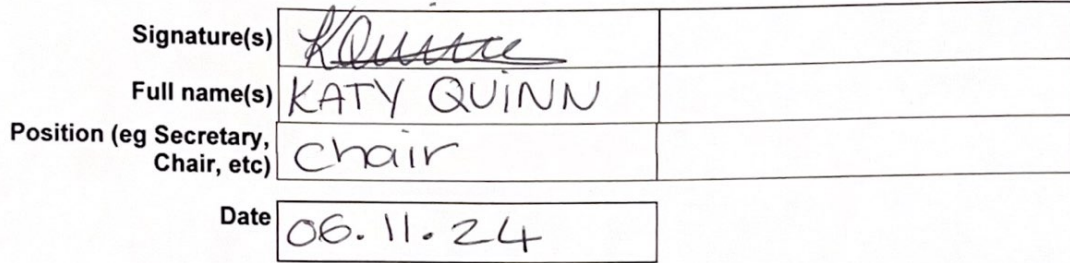 Signature(s) KQuinn
Full name(s) KATY QUINN
Position (eg Secretary,
Chair, etc) Chair
Date 06.11.24